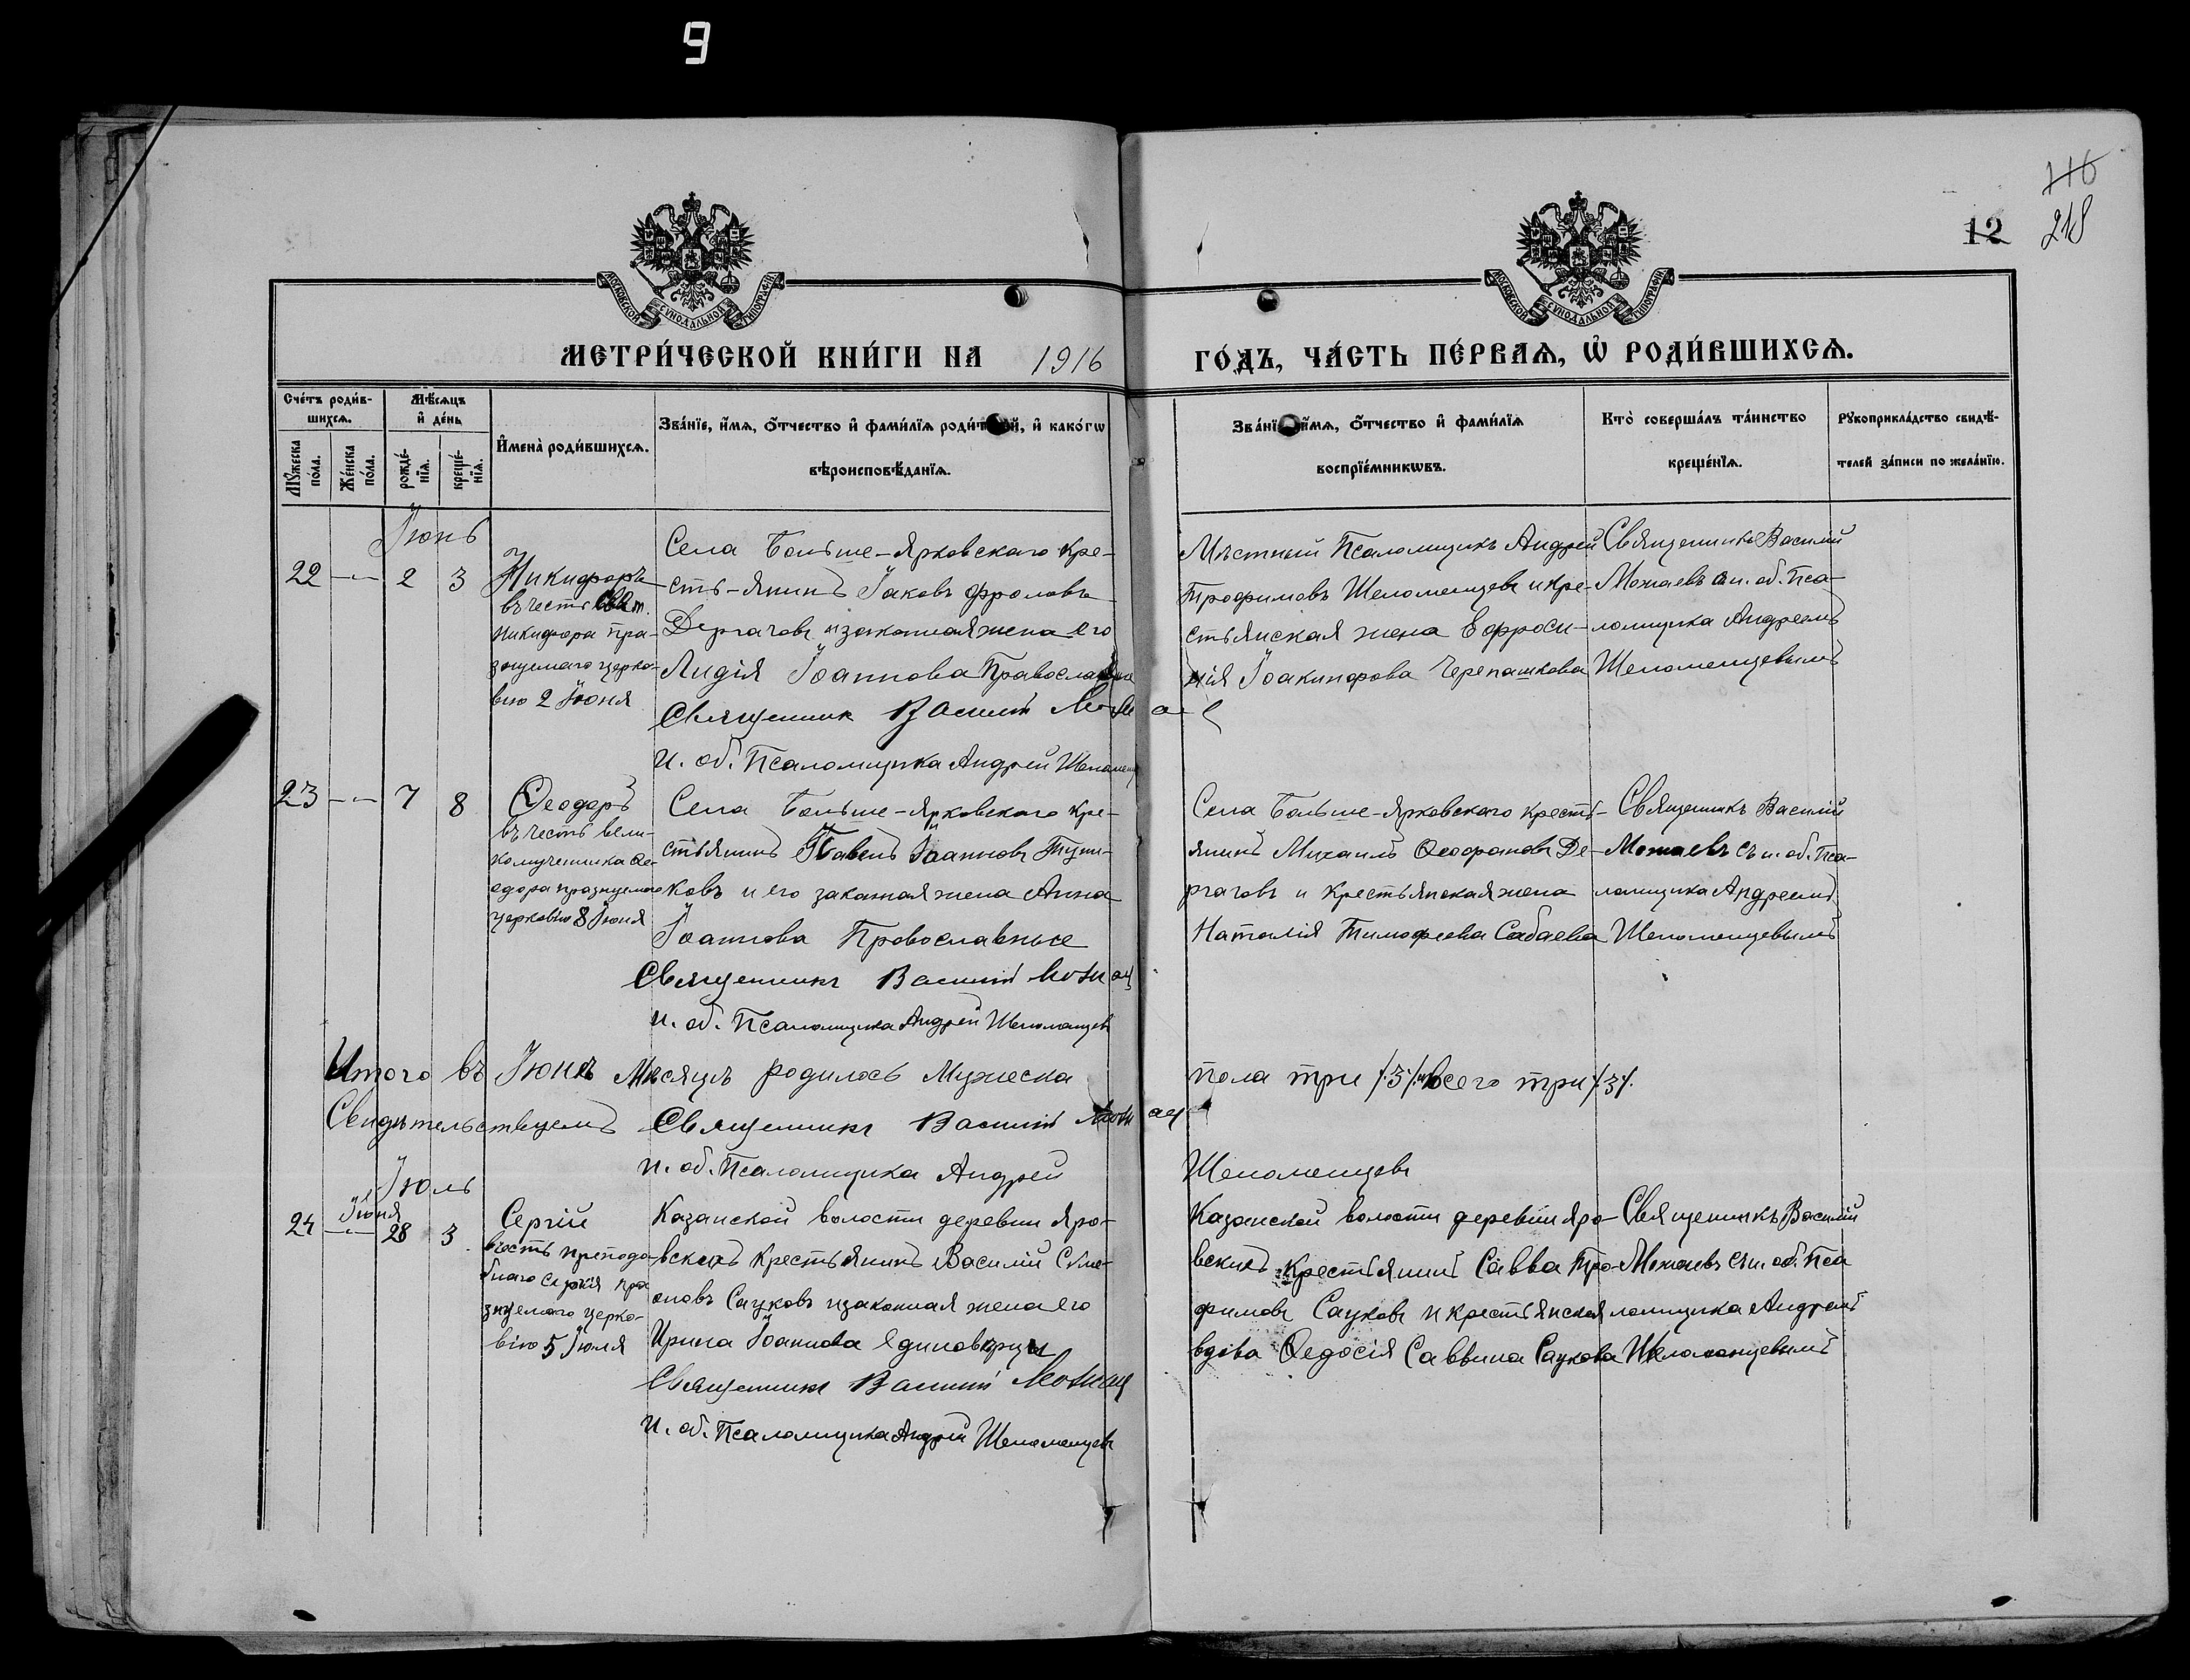 9
116
12 218
МОСКОВСКОЙ СѴНОДАЛЬНОЙ ТИПОГРАФІИ
МОСКОВСКОЙ СѴНОДАЛЬНОЙ ТИПОГРАФІИ
МЕТРИ́ЧЕСКОЙ КНИ́ГИ НА 1916 ГО́ДЪ, ЧА́СТЬ ПЕ́РВАѦ, Ѡ҆ РОДИ́ВШИХСѦ.
Сче́тъ роди́в-
шихсѧ.
Мꙋ́жеска по́ла.
Же́нска по́ла.
Мѣ́сѧцъ
и҆ де́нь
рожде́-
нїѧ.
креще́-
нїѧ.
И҆мена̀ роди́вшихсѧ.
Зва́нїе, и҆́мѧ, ѻ҆́тчество и҆ фами́лїѧ роди́т й, и҆ како́гѡ
вѣроисповѣ́данїѧ.
Зва́нї и҆́мѧ, ѻ҆́тчество и҆ фами́лїѧ
воспрїе́мникѡвъ.
Кто̀ соверша́лъ та́инство
креще́нїѧ.
Рꙋкоприкла́дство свидѣ́-
телей за́писи по жела́нїю.
Іюнь
22 -"- 2 3
Никифоръ
въ честь Свят.
Никифора пра-
зднуемаго церко-
вію 2 Іюня
Села Больше-Ярковскаго кре-
сть-янинъ Іаковъ Фроловъ
Дергачовъ и законная жена его
Лидія Іоаннова Православные
Священник Василий Можае
и. об. Псаломщика Андрей Шеломенц
Мѣстный Псаломщикъ Андрей
Трофимовъ Шеломенцевъ и кре-
стьянская жена Ефроси-
нія Іоакинфова Черепашкова
Священникъ Василій
Можаевъ с и. об. Пса-
ломщика Андреемъ
Шеломенцевымъ
23 -"- 7 8
Ѳеодоръ
въ честь вели-
комученика Ѳе-
одора празнуемаго
церковію 8 Іюня
Села Больше-Ярковскаго кре-
стьянинъ Павелъ Іоанновъ Тупи-
ковъ и его законная жена Анна
Іоаннова Провославные
Священникъ Василий Можае
и. об. Псаломщика Андрей Шеломенцевъ
Села Больше-Ярковскаго кресть-
янинъ Михаилъ Ѳеофановъ Де-
ргачовъ и крестьянская жена
Наталія Тимофеева Сабаева
Священникъ Василій
Можаевъ съ и. об. Пса-
ломщика Андреемъ
Шеломенцевымъ
Итого въ Іюнѣ Мѣсяцѣ родилось Мужеска пола три /3/. Всего три /3/.
Свидѣтельствуемъ Священникъ Василий Можае
и. об. Псаломщика Андрей Шеломенцевъ
Іюль
Іюня
24 -"- 28 3
Сергій
въ честь преподо-
бнаго Сергія пра-
зднуемаго церко-
вію 5 Іюля
Казанской волости деревни Яро-
вскихъ крестьянинъ Василій Симе-
оновъ Сауковъ и законная жена его
Ирина Іоаннова Единовѣрцы
Священникъ Василий Можае
и. об. Псаломщика Андрей Шеломенцевъ
Казанской волости деревни Яро-
вскихъ крестьянинъ Савва Тро-
фимовъ Сауковъ и крестьянская
вдова Ѳедосія Саввина Саукова
Священникъ Василій
Можаевъ съ и. об. Пса
ломщика Андреемъ
Шеломенцевымъ